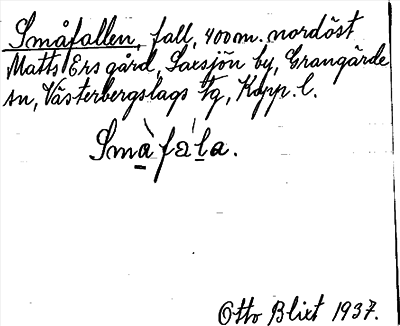 Småfallen, fall, 400 m. nordöst
Matts Ers gård, Saxsjön by, Grangärde
sn, Västerbergslags tg, Kopp. l.
Småfala.
Otto Blixt 1937.